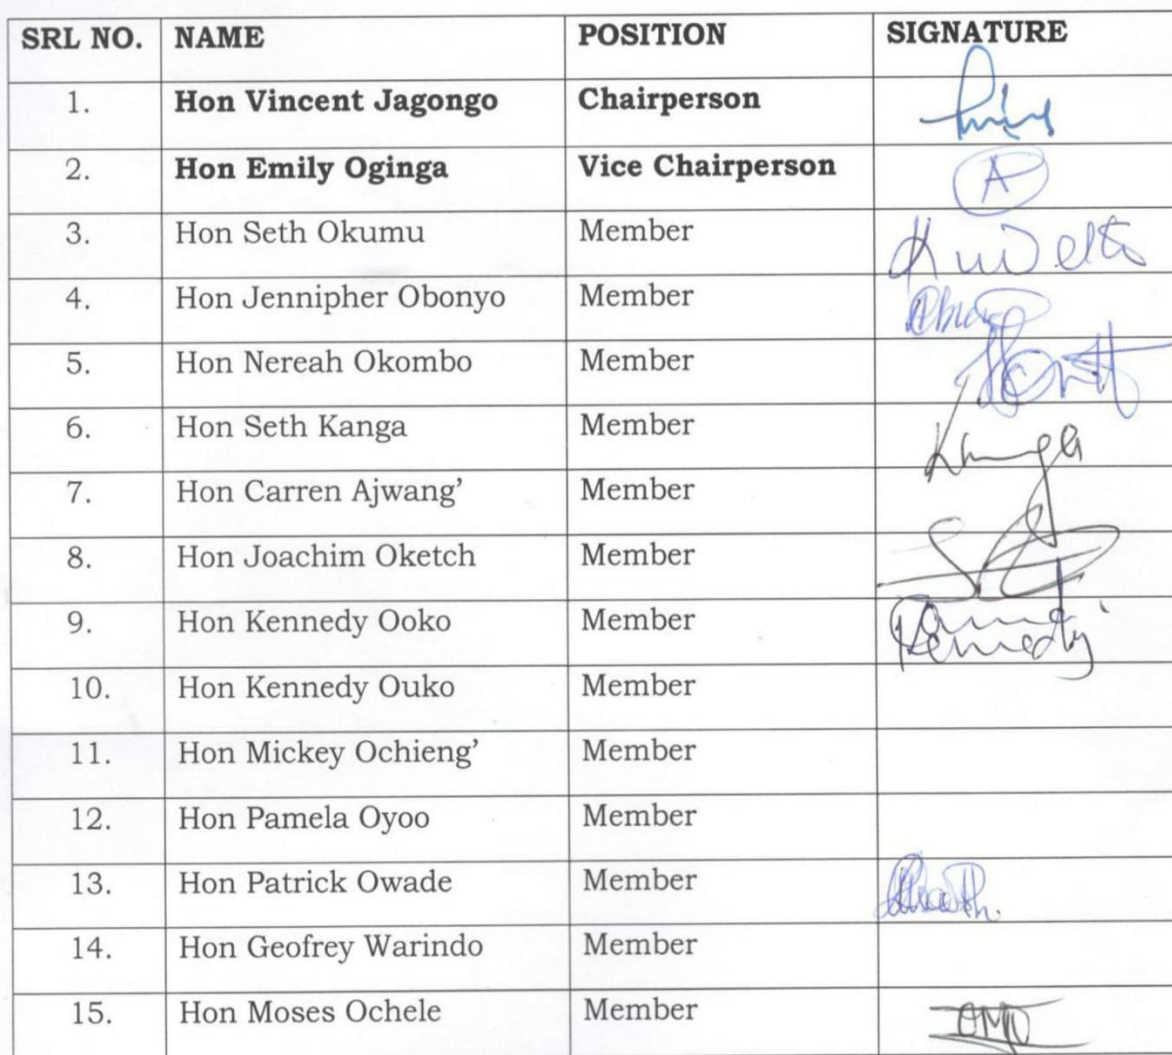 SRL NO. NAME POSITION SIGNATURE
1. Hon Vincent Jagongo Chairperson
2. Hon Emily Oginga Vice Chairperson A
3. Hon Seth Okumu Member
4. Hon Jennipher Obonyo Member
5. Hon Nereah Okombo Member
6. Hon Seth Kanga Member
7. Hon Carren Ajwang’ Member
8. Hon Joachim Oketch Member
9. Hon Kennedy Ooko Member Kennedy
10. Hon Kennedy Ouko Member
11. Hon Mickey Ochieng’ Member
12. Hon Pamela Oyoo Member
13. Hon Patrick Owade Member
14. Hon Geofrey Warindo Member
15. Hon Moses Ochele Member